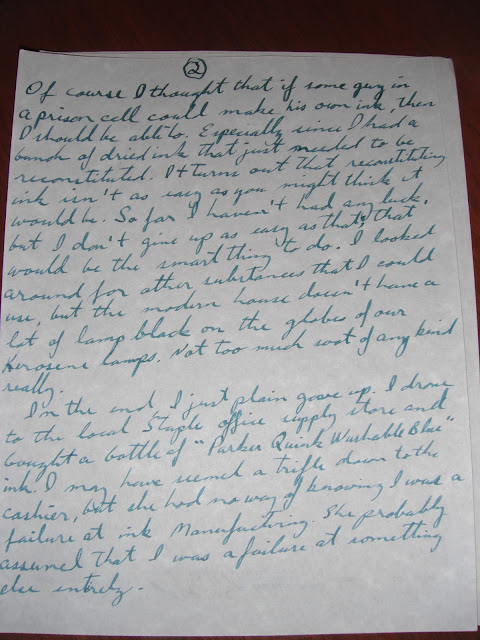 2
Of course I thought that if some guy in
a prison cell could make his own ink, then
I should be able to. Especially since I had a
bunch of dried ink that just needed to be
reconstituted. It turns out that reconstituting
ink isn't as easy as you might think it
would be. So far I haven't had any luck,
but I don't give up as easy as that; that
would be the smart thing to do. I looked
around for other substances that I could
use, but the modern house doesn't have a
lot of lamp black on the globes of our
Kerosene lamps. Not too much soot of any kind
really.
In the end I just plain gave up. I drove
to the local Staple office supply store and
bought a bottle of "Parker Quink Washable Blue"
ink. I may have seemed a trifle down to the
cashier, but she had no way of knowing I was a
failure at ink Manufacturing. She probably
assumed that I was a failure at something
else entirely.